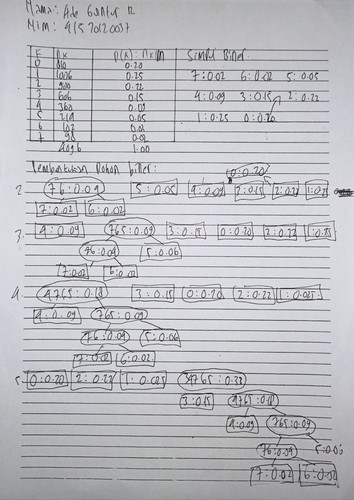 Nama: Ade Guntur R
Nim: 41520120037
E nk P(k): nk/M Simbol Biner
0 0.20
1 1006 0.25 7:0.02 6:0.02 5:0.05
2 900 0.22
3 606 0.15 4:0.09 3:0.15 2:0.22
4 360
5 0.05 1:0.25 0:0.20
6
7
4096 1.00
Pembentukan Pohon biner:
0:0.20
2. 76:0.04 5:0.05 4:0.09 3:0.15 2:0.22
7:0.02 6:0.02
3. 4:0.09 765:0.09 3:0.15 0:0.20 2:0.22 1:0.25
76:0.04 5:0.06
7:0.02 6:0.02
4. 4765:0.18 3:0.15 0:0.20 2:0.22 1:0.025
4:0.09 765:0.09
76:0.09 5:0.06
7:0.02 6:0.02
5. 0:0.20 2:0.22 1:0.025 34765:0.33
3:0.15 4765:0.18
4:0.09 765:0.09
76:0.09 5:0.06
7:0.02 6:0.02